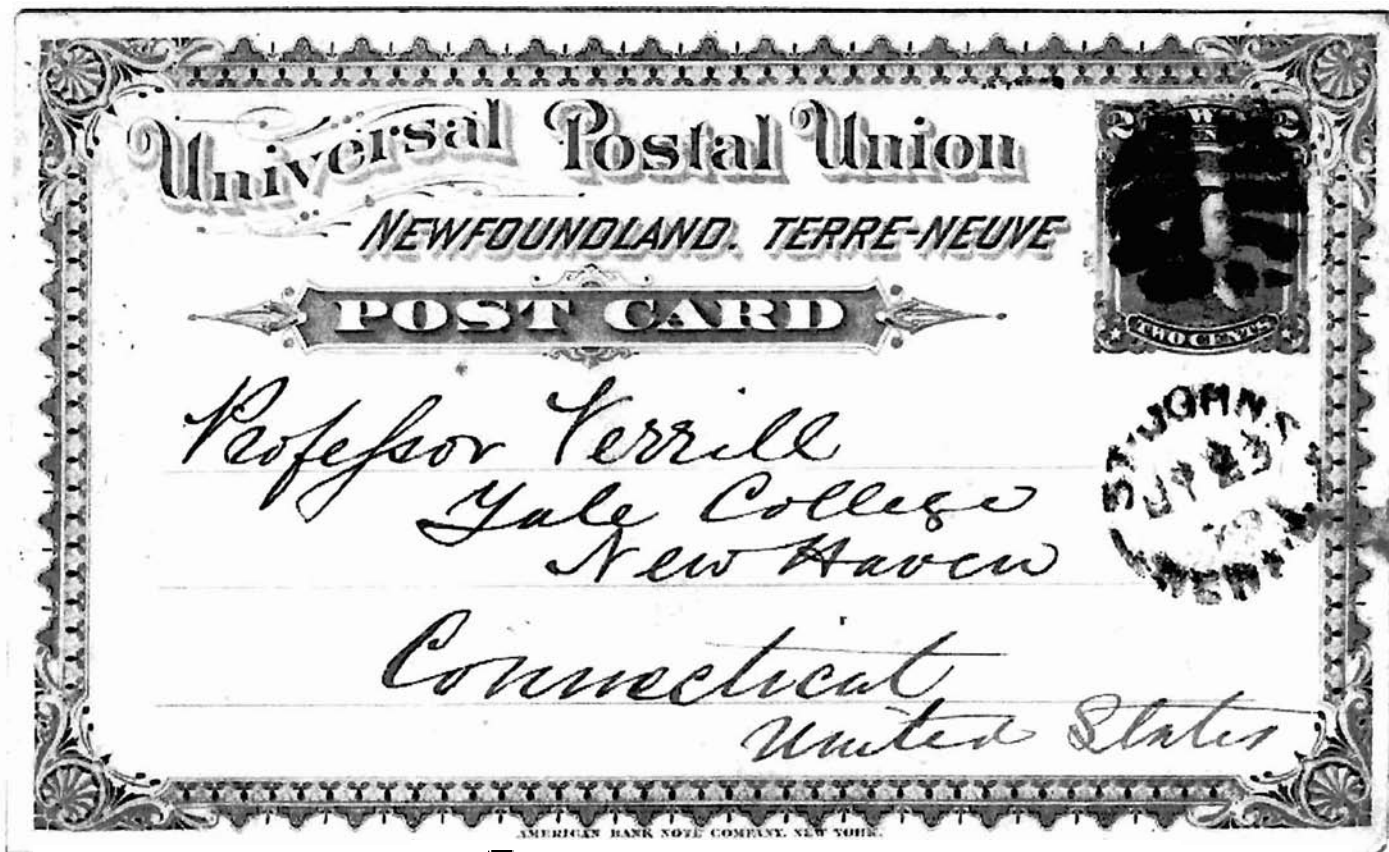 Universal Postal Union
NEWFOUNDLAND. TERRE-NEUVE
POST CARD
2 2
TWO CENTS
ST. JOHN'S
23
Professor Verrill
Yale College
New Haven
Connecticut
United States
AMERICAN BANK NOTE COMPANY, NEW YORK.